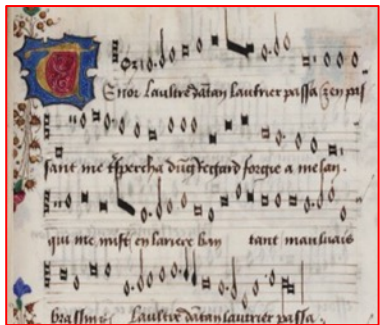 Tenor Laultre dātan lautrier passa Et en pas
sant me tˢpercha dung Regard forgie a melan.
qui me mist en lariere ban tant mauluais
brassin Laultre dātan lautrier passa.